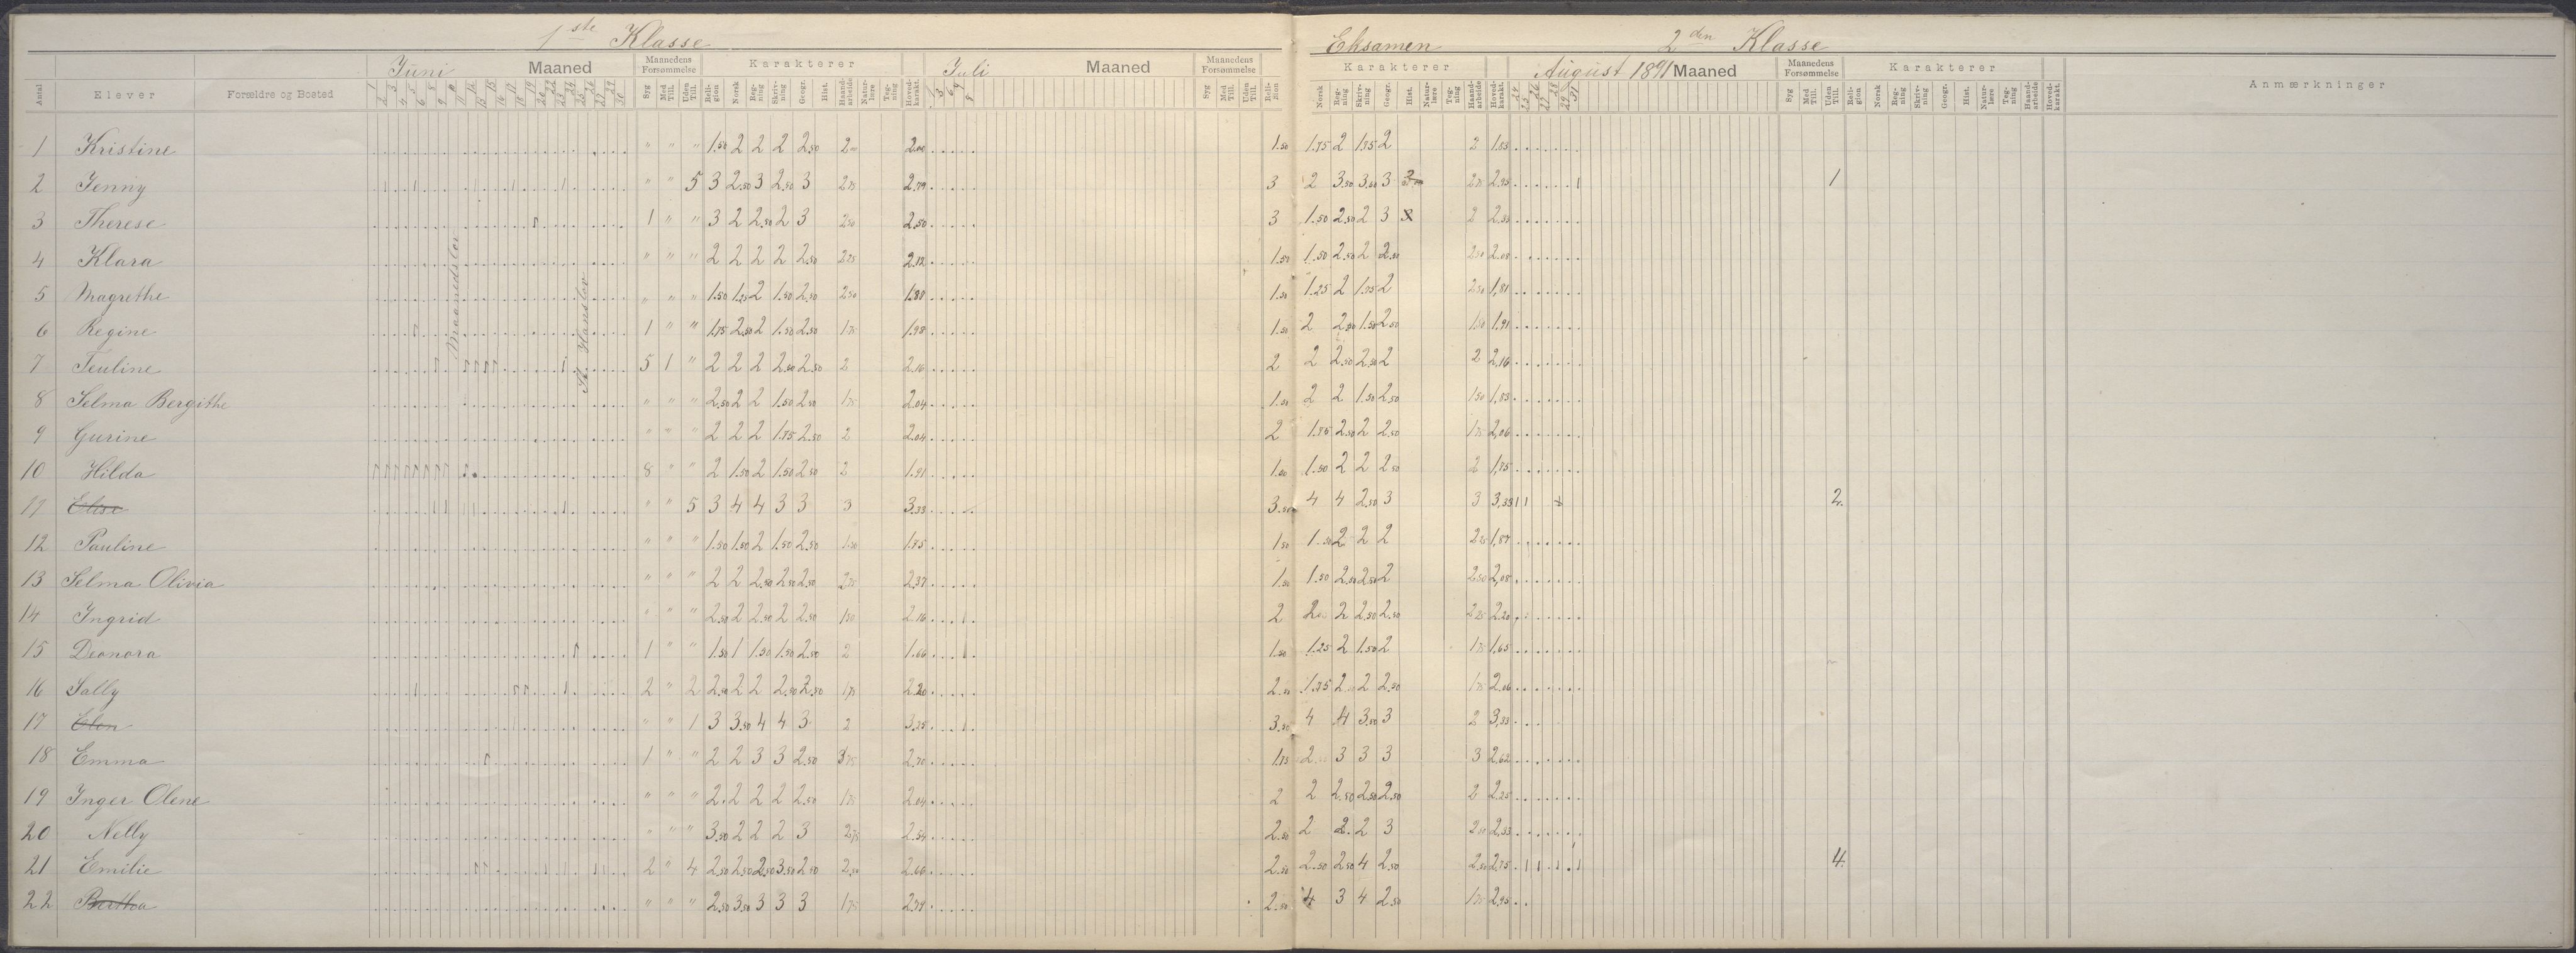 1ste Klasse
Eksamen 2den Klasse
Juni Maaned Maanedens Forsømmelse Karakterer Juli Maaned Maanedens Forsømmelse Karakterer August 1891 Maaned Maanedens Forsømmelse Karakterer Anmærkninger
Antal Elever Forældre og Bosted Syg Med Till. Uden Till. Religion Norsk Regning Skrivning Geogr. Hist. Haandarbeide Naturlære Tegning Hovedkarakt. Syg Med Till. Uden Till. Religion Norsk Regning Skrivning Geogr. Hist. Naturlære Tegning Haandarbeide Hovedkarakt. Syg Med Till. Uden Till. Religion Norsk Regning Skrivning Geogr. Hist. Naturlære Tegning Haandarbeide Hovedkarakt.
Maanedslov
St. Hanslov
1 Kristine " " " 1.50 2 2 2 2.50 2 2.00 1.50 1.75 2 1.75 2 2 1.83
2 Jenny " " 5 3 2.50 3 2.50 3 2.75 2.79 3 2 3.50 3.50 3 2.75 2.95 1
3 Therese 1 " " 3 2 2.50 2 3 2.50 2.50 3 1.50 2.50 2 3 2 2.33
4 Klara " " " 2 2 2 2 2.50 2.25 2.12 1.50 1.50 2.50 2 2.50 2.50 2.08
5 Magrethe " " " 1.50 1.25 2 1.50 2.50 2.50 1.87 1.50 1.25 2 1.75 2 2.50 1,81
6 Regine 1 " " 1.75 2.50 2 1.50 2.50 1.75 1.98 1.50 2 2.50 1.50 2.50 1.50 1.91
7 Teuline 5 1 " 2 2 2 2.50 2.50 2 2.16 2 2 2.50 2.50 2 2 2,16
8 Selma Bergithe " " " 2.50 2 2 1.50 2.50 1.75 2.04 1.50 2 2 1.50 2.50 1.50 1,83
9 Gurine " " " 2 2 2 1.75 2.50 2 2.04 2 1.75 2.50 2 2.50 1.75 2,06
10 Hilda 8 " " 2 1.50 2 1.50 2.50 2 1.91 1.50 1.50 2 2 2.50 2 1,75
11 Elise " " 5 3 4 4 3 3 3 3.33 3.50 4 4 2.50 3 3 3,33 2.
12 Pauline " " " 1.50 1.50 2 1.50 2.50 1.50 1.75 1.50 1.50 2 2 2 2.25 1,87
13 Selma Olivia " " " 2 2 2.50 2.50 2.50 2.75 2.37 1.50 1.50 2.50 2.50 2 2.50 2,08
14 Ingrid " " " 2.50 2 2.50 2 2.50 1.50 2.16 2 2 2 2.50 2.50 2.25 2.20
15 Deonora 1 " " 1.50 1 1.50 1.50 2.50 2 1.66 1.50 1.25 2 1.50 2 1.75 1.65
16 Sally 2 " 2 2.50 2 2 2.50 2.50 1.75 2.20 2.50 1.75 2 2 2.50 1.75 2.06
17 Elen " " 1 3 3.50 4 4 3 2 3.25 3.50 4 4 3.50 3 2 3,33
18 Emma 1 " " 2 2 3 3 2.50 3.75 2.70 1.75 2 3 3 3 3 2,62
19 Inger Olene " " " 2 2 2 2 2.50 1.75 2.04 2 2 2.50 2.50 2.50 2 2.25
20 Nelly " " " 3.50 2 2 2 3 2.75 2.54 2.50 2 2 2 3 2.50 2,33
21 Emilie 2 " 4 2.50 2.50 2.50 3.50 2.50 2.50 2.66 2.50 2.50 2.50 4 2.50 2.50 2.75 4.
22 Bertha " " " 2.50 3.50 3 3 3 1.75 2.79 2.50 4 3 4 2.50 1.75 2,95